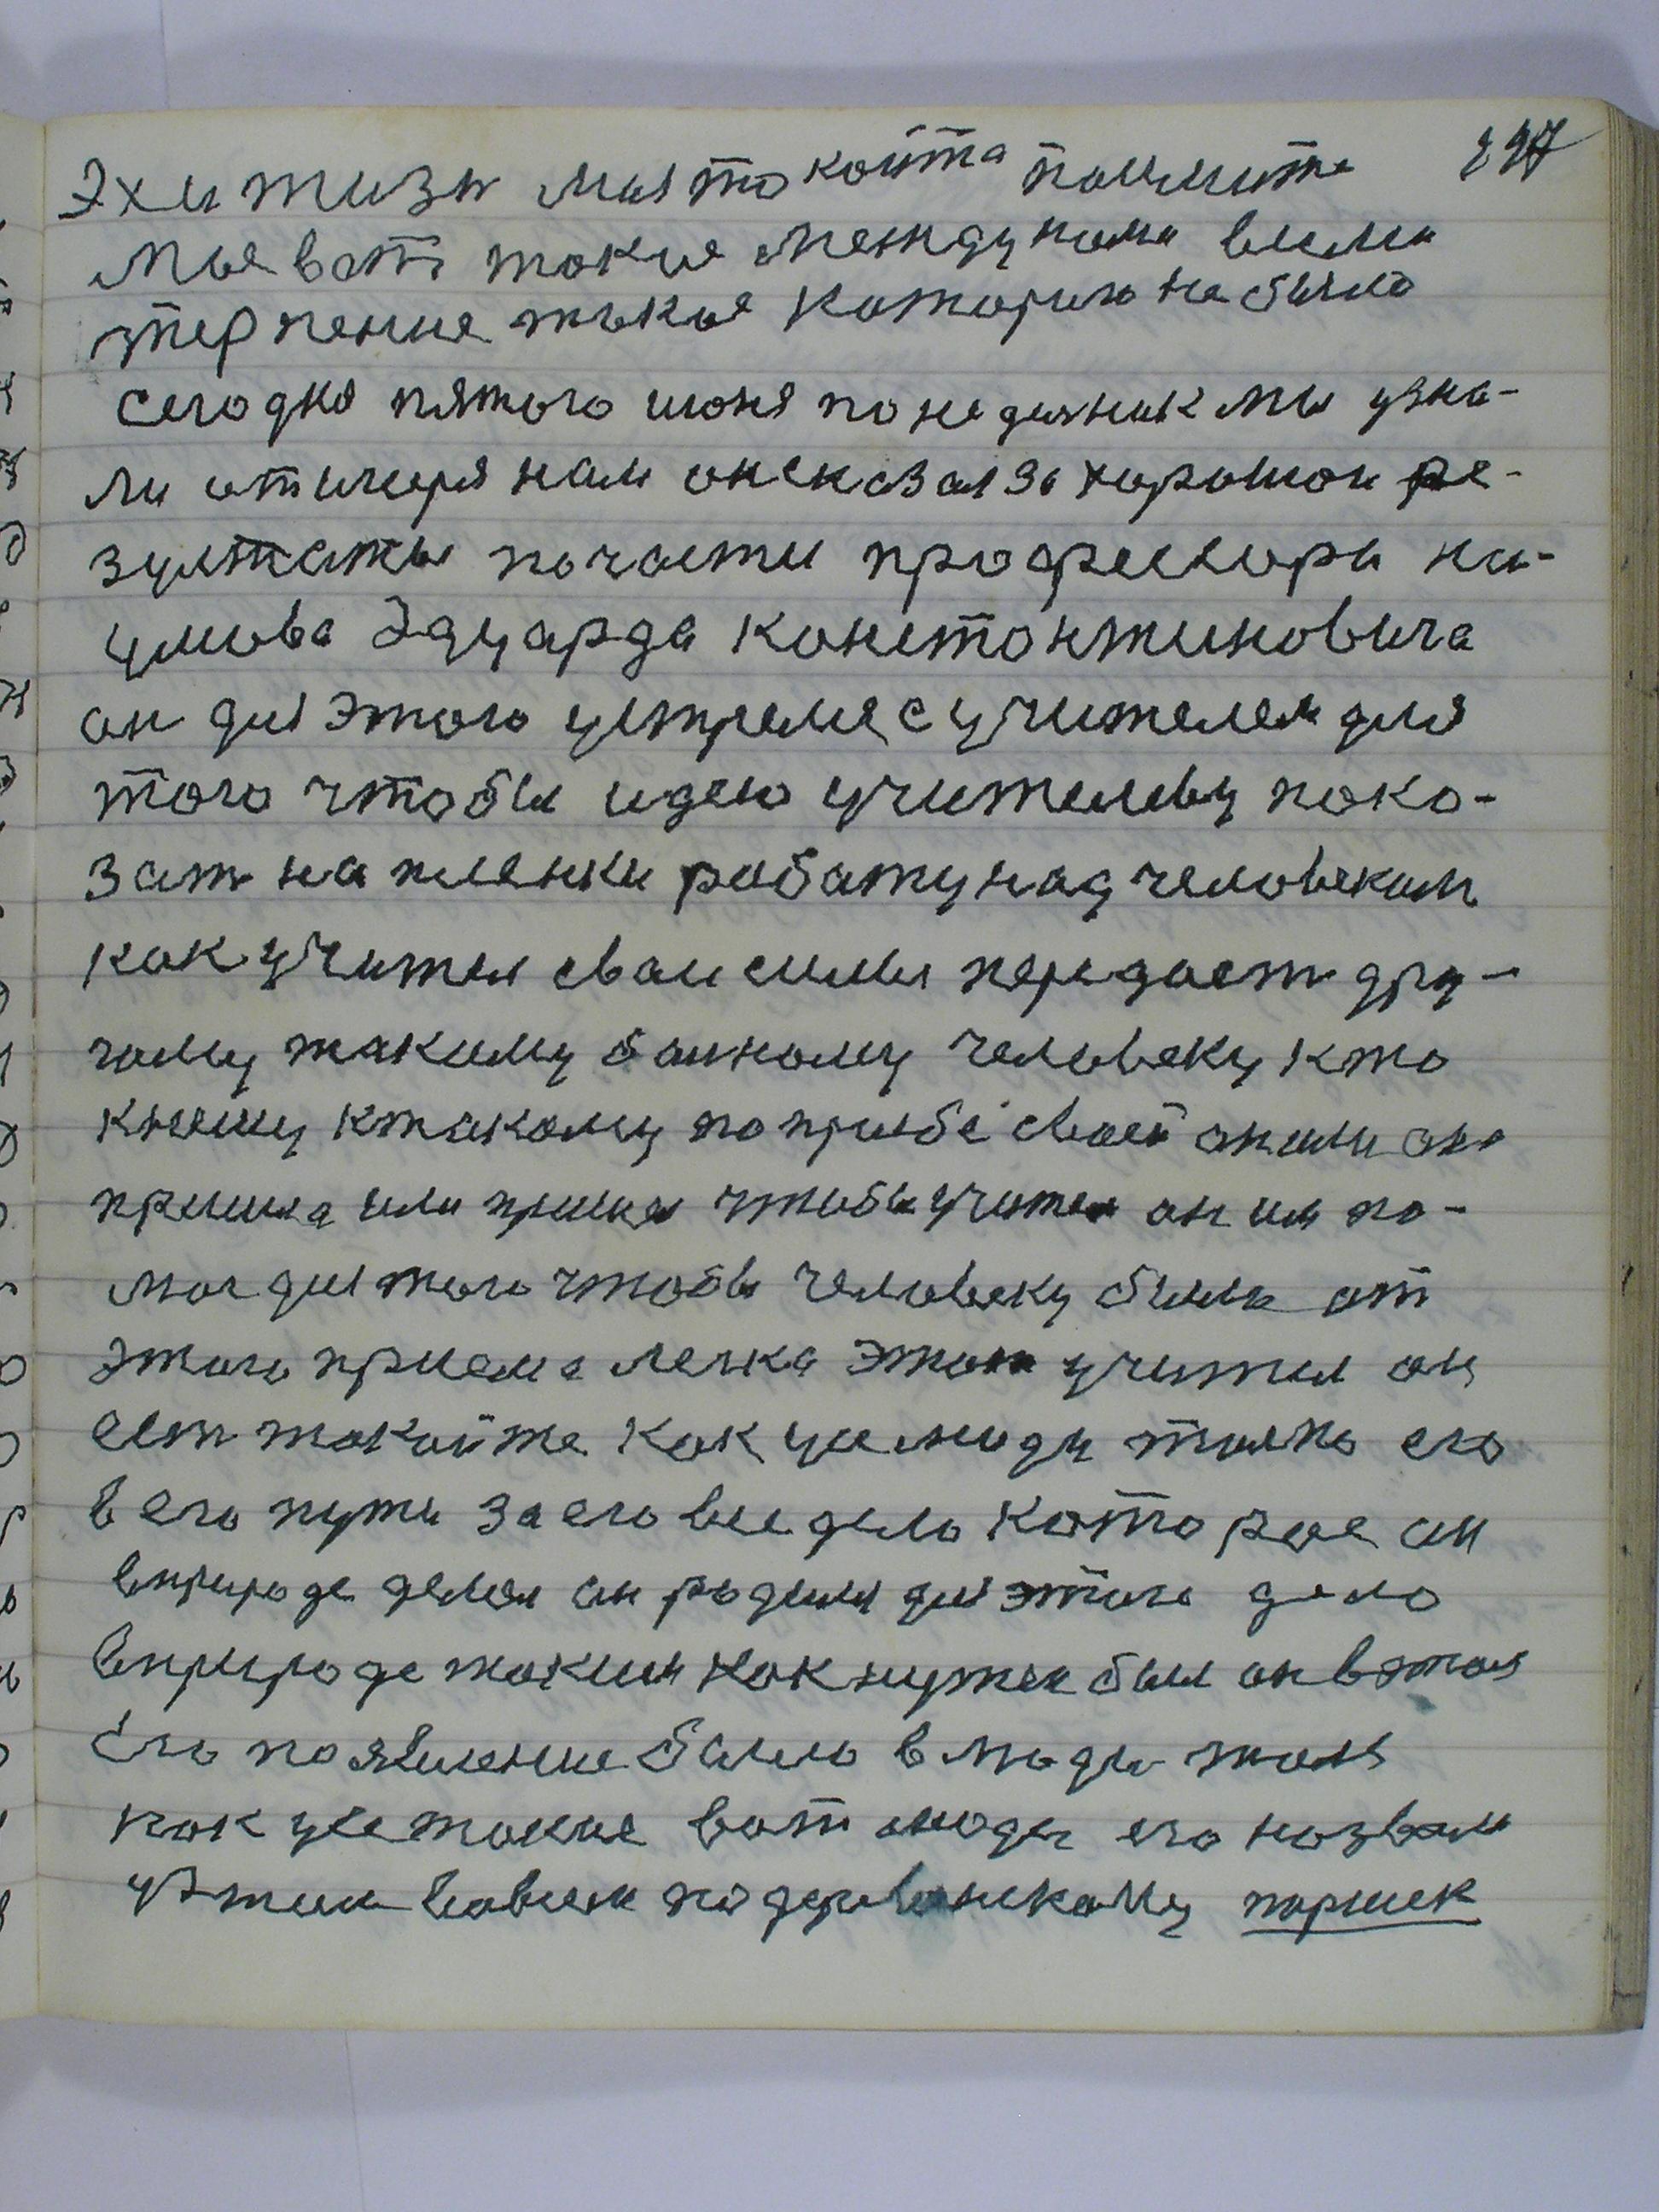 Эх и жизн мая токойта помлита 297
Мое вот такие между нами всими
терпение такое катораю не было
Сегодня пятого июня понедилник мы узна-
ли от игоря нам он сказал за харошои ре-
зултаты почасти профессора на-
умова Эдуарда Констонтиновича
он для этого устреме с учителем для
того чтобы идею учителеву поко-
зат на пленки работу над человеком
как учител сваи силы передаетдру-
гому такому болному человеку кто
кнему ктакому попрозбе своей он или она
пришла или пришол чтобы учител он им по-
мог для того чтобы человеку было от
этого приема легка этот учител он
ест токойже как усе люди толко его
в его пути за его все дело которое он
вприроде делал он родилы для этого дело
вприроде таким как нужен был он вэтом
Его появление было в людях том
как усе такие вот люди его назвали
Паршек